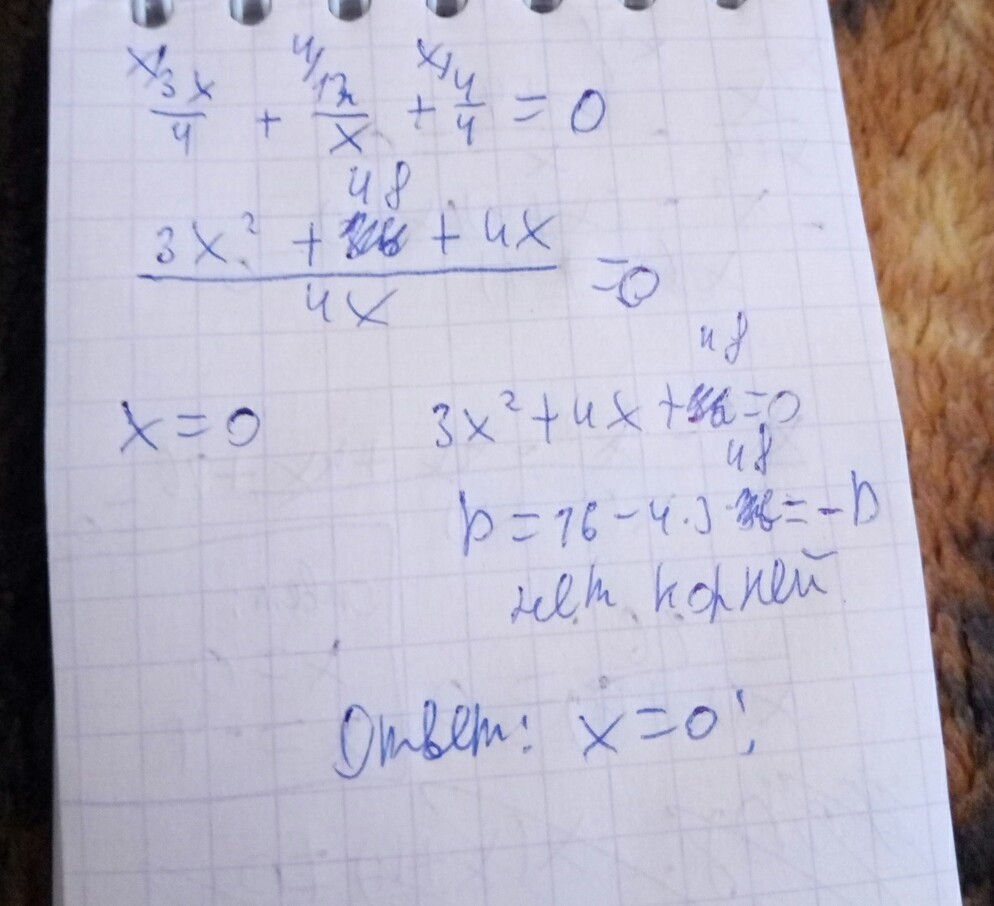 x/ 3x/4 + 4/ 12/x + x/ 4/4 = 0
48
3x² + + 4x / 4x = 0
48
x = 0 3x² + 4x + = 0
48
D = 16 - 4·3· = -D
нет корней
Ответ: x = 0;